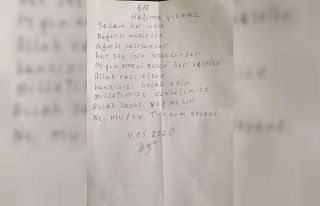 Halime yılmaz
Selam her kese
Değerli müdürler
değerli calısanlar
her sey icin Tesekürler
emeyi gecen her keseten
Allah razı olsun
hakkinizi helal edin
milletimize devletimize
Allah zaval vermesin
Ne mutlu Türküm deyene
4.05.2020